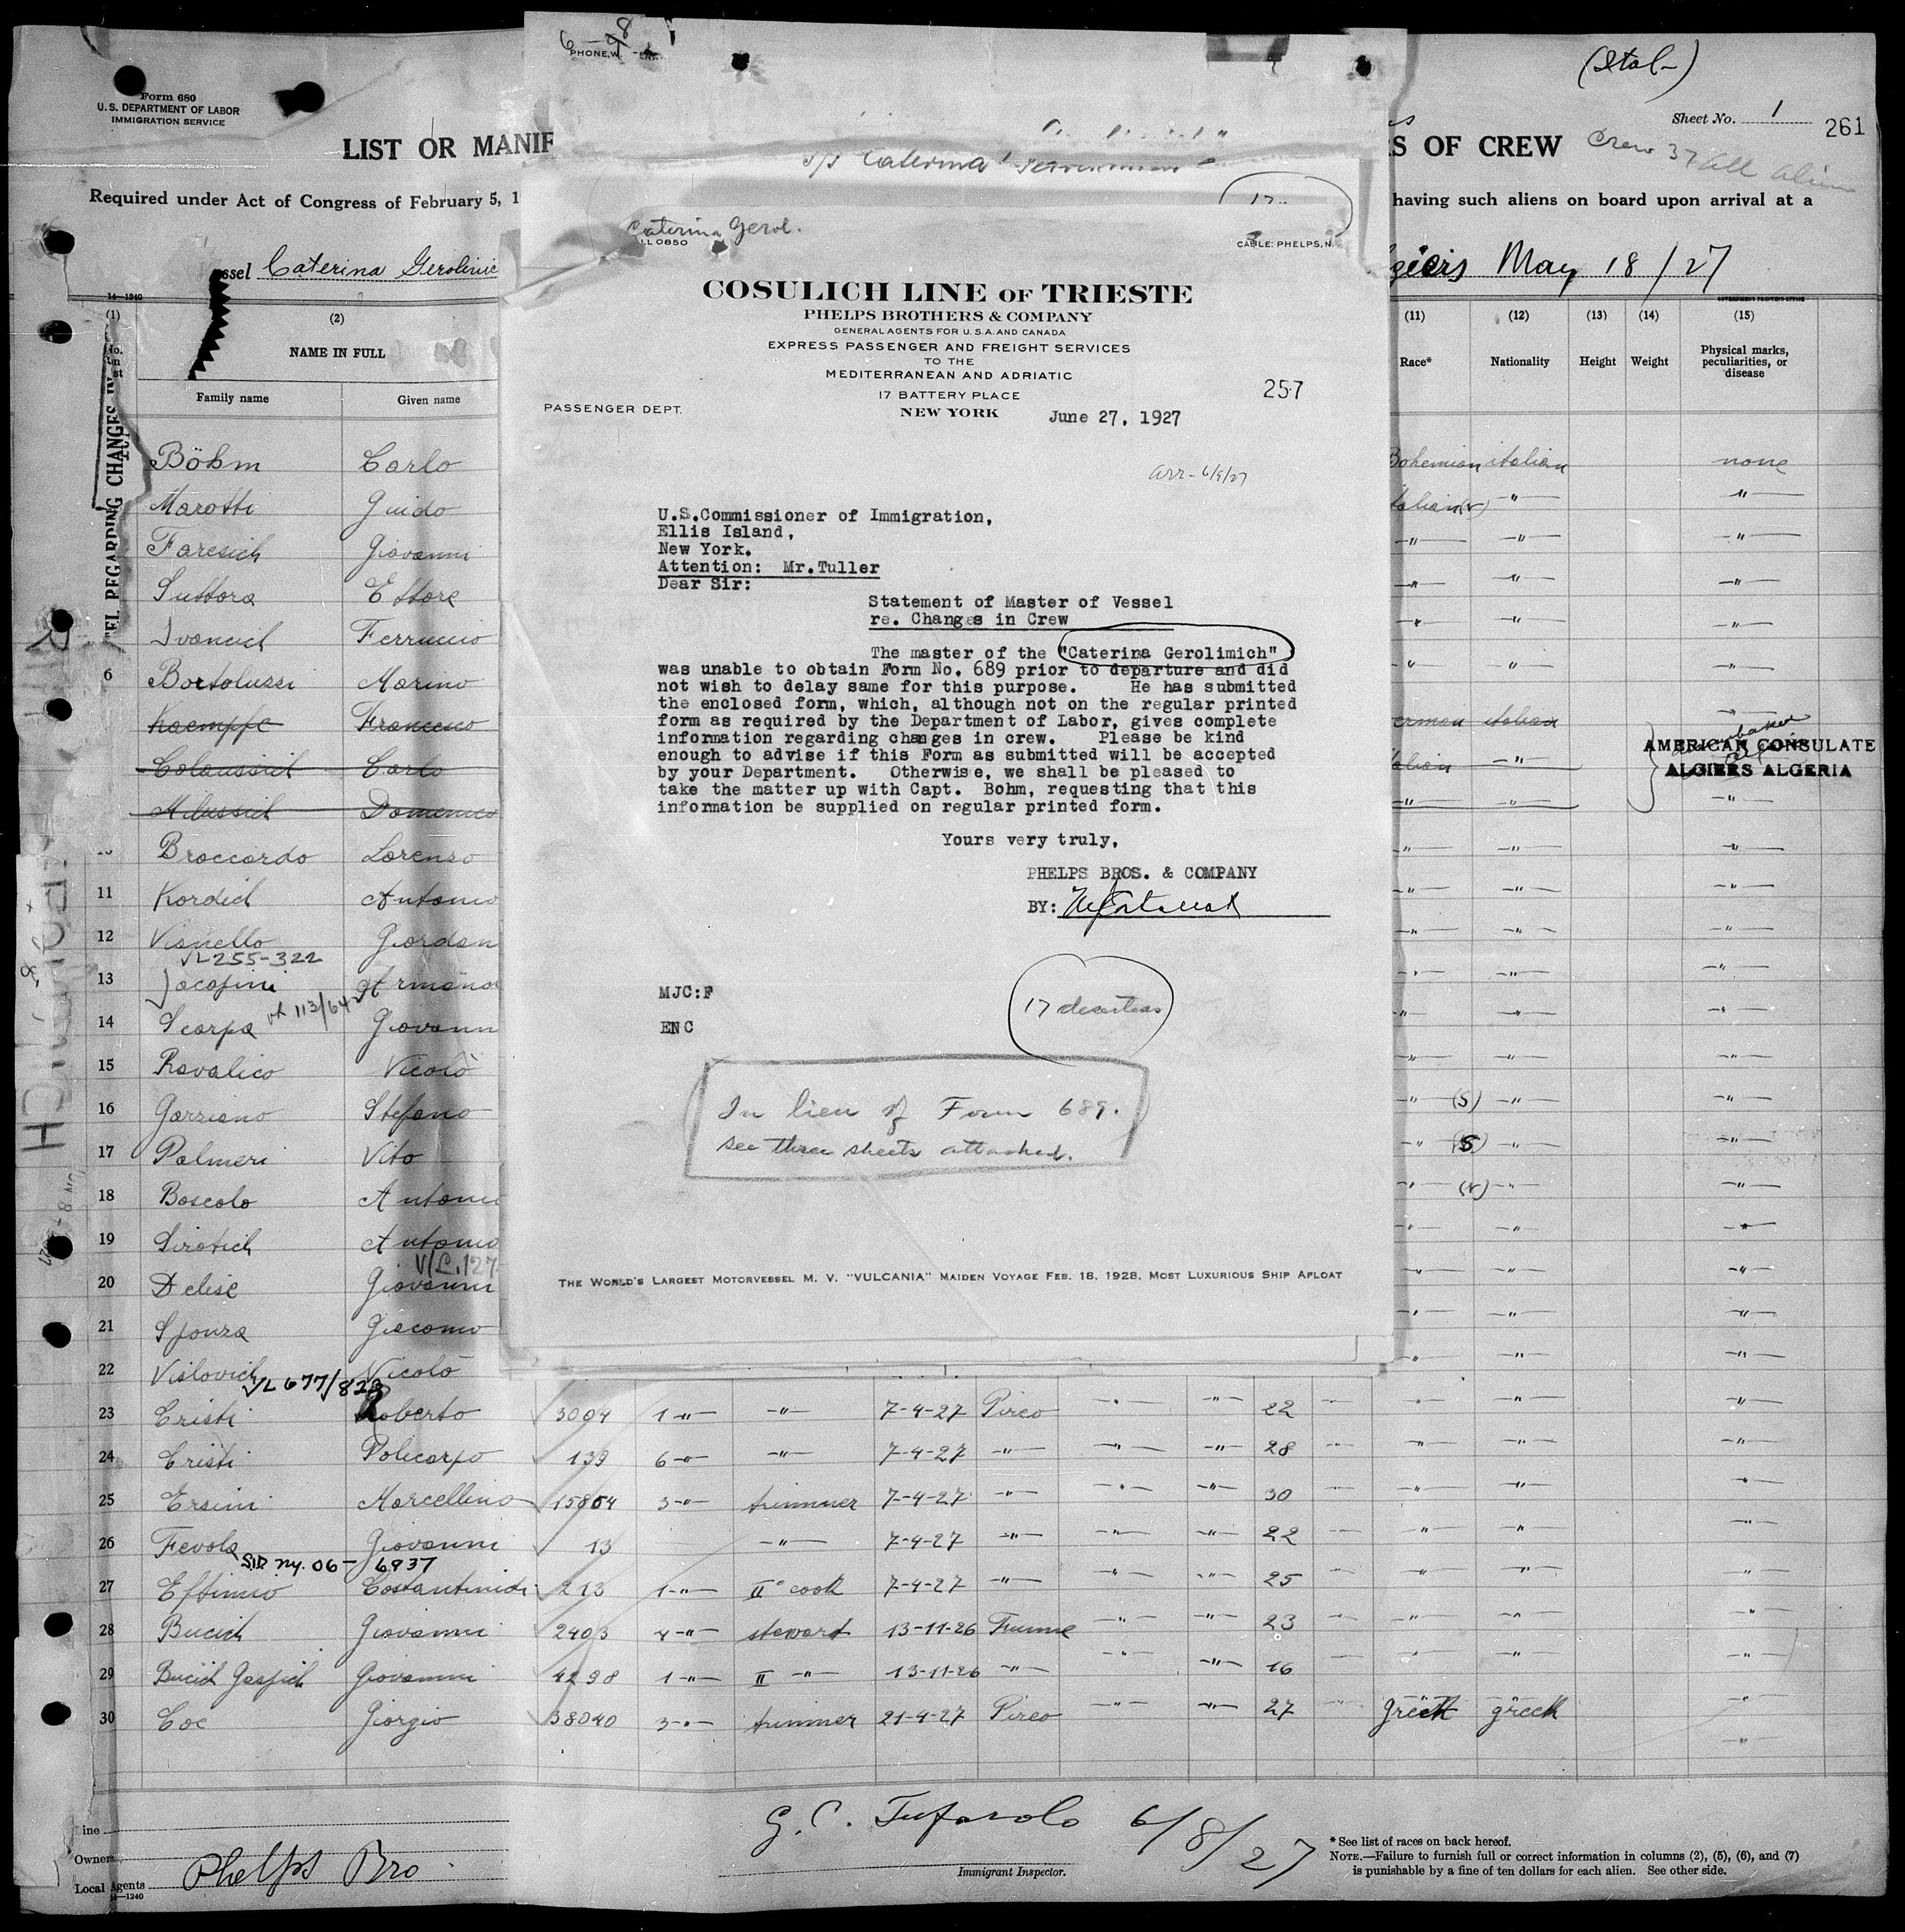 (Ital-)
Form 680
U.S. DEPARTMENT OF LABOR
IMMIGRATION SERVICE
Sheet No. 1
261
LIST OR MANIF
S OF CREW
Crew 37 All Alien
Required under Act of Congress of February 5, 1
having such aliens on board upon arrival at a
ssel Caterina Gerolimic
giers May 18/27
s/s Caterina
17
Caterina Gerol.
LL 0850
CABLE: PHELPS, N.
COSULICH LINE OF TRIESTE
PHELPS BROTHERS & COMPANY
GENERAL AGENTS FOR U.S.A. AND CANADA
EXPRESS PASSENGER AND FREIGHT SERVICES
TO THE
MEDITERRANEAN AND ADRIATIC
17 BATTERY PLACE
PASSENGER DEPT.
NEW YORK
June 27, 1927
257
Arr- 6/8/27
U.S.Commissioner of Immigration,
Ellis Island,
New York.
Attention: Mr.Tuller
Dear Sir:
Statement of Master of Vessel
re. Changes in Crew
The master of the "Caterina Gerolimich"
was unable to obtain Form No. 689 prior to departure and did
not wish to delay same for this purpose. He has submitted
the enclosed form, which, although not on the regular printed
form as required by the Department of Labor, gives complete
information regarding changes in crew. Please be kind
enough to advise if this Form as submitted will be accepted
by your Department. Otherwise, we shall be pleased to
take the matter up with Capt. Bohm, requesting that this
information be supplied on regular printed form.
Yours very truly,
PHELPS BROS. & COMPANY
BY:
MJC:F
ENC
17 deserters
In lieu of Form 689.
see three sheets attached.
THE WORLD'S LARGEST MOTORVESSEL M. V. "VULCANIA" MAIDEN VOYAGE FEB. 18, 1928. MOST LUXURIOUS SHIP AFLOAT
14—1240
(1) (2) (11) (12) (13) (14) (15)
NAME IN FULL
Family name Given name
Race* Nationality Height Weight Physical marks, peculiarities, or disease
REGARDING CHANGES IN
Böhm Carlo Bohemian italian none
Marotti Guido talian (N) -"- -"-
Faresich Giovanni -"- -"- -"-
Suttora Ettore -"- -"- -"-
Ivancich Ferruccio -"- -"- -"-
6 Bortoluzzi Marino -"- -"- -"-
Kaempfe Francesco erman italian -"-
Colaussich Carlo talian -"-
AMERICAN CONSULATE
ALGIERS ALGERIA
Milussich Domenico -"- -"- -"-
Broccardo Lorenzo -"- -"- -"-
11 Kordich Antonio -"- -"- -"-
12 Visnello Giordan -"- -"- -"-
VL 255-322
13 Jacofini Armand -"- -"- -"-
14 Scarpa Giovann -"- -"- -"-
15 Ravalico Nicolò -"- -"- -"-
16 Garziano Stefano -"- (S) -"- -"-
17 Palmeri Vito -"- (S) -"- -"-
18 Boscolo Antonio -"- (N) -"- -"-
19 Sirotich Antonio -"- -"- -"-
V/L.127
20 Delise Giovanni -"- -"- -"-
21 Sponza Giacomo -"- -"- -"-
22 Vislovich Nicolò -"- -"- -"-
VL 677/823
23 Cristi Roberto 3004 1-"- -"- 7-4-27 Pireo -"- -"- 22 -"- -"- -"- -"-
24 Cristi Policarpo 139 6-"- -"- 7-4-27 -"- -"- -"- 28 -"- -"- -"- -"-
25 Ersini Marcellino 15804 3-"- trimmer 7-4-27 -"- -"- -"- 30 -"- -"- -"-
26 Fevola Giovanni 13 -"- 7-4-27 -"- -"- -"- 22 -"- -"- -"- -"-
SID ny. 06- 6937
27 Eftimio Costantinidi 213 1-"- II° cook 7-4-27 -"- -"- -"- 25 -"- -"- -"- -"-
28 Bucich Giovanni 2403 4-"- steward 13-11-26 Fiume -"- -"- 23 -"- -"- -"- -"-
29 Bucich Gaspich Giovanni 4298 1-"- II -"- 13-11-26 -"- -"- -"- 16 -"- -"- -"- -"-
30 Coc Giorgio 38040 3-"- trimmer 21-4-27 Pireo -"- -"- 27 -"- greek greek -"-
Line
Owners
Local Agents Phelps Bro
14—1240
G. C. Tufarolo 6/8/27
Immigrant Inspector.
* See list of races on back hereof.
NOTE.—Failure to furnish full or correct information in columns (2), (5), (6), and (7)
is punishable by a fine of ten dollars for each alien. See other side.